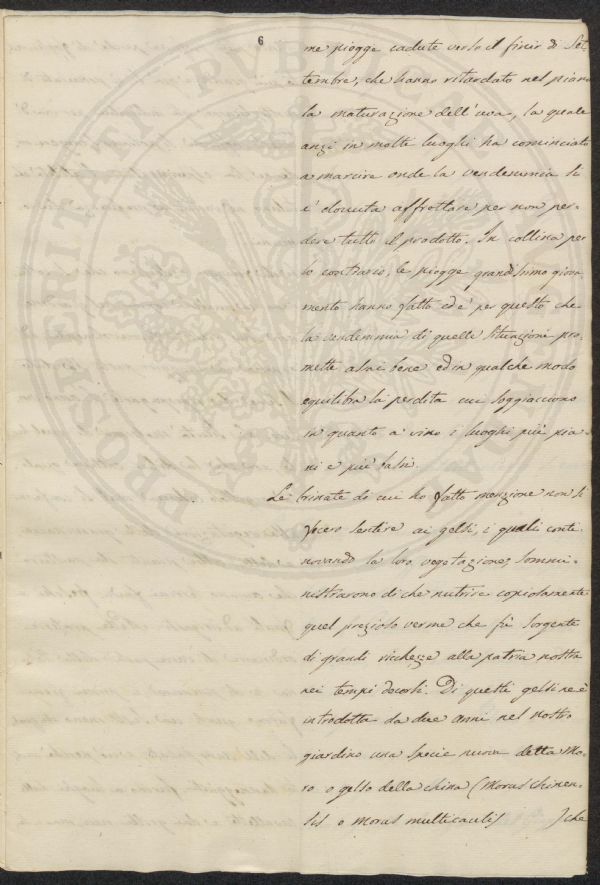 6
me piogge cadute verso il finir di Set-
tembre, che hanno ritardato nel piano
la maturazione dell'uva, la quale
anzi in molti luoghi ha cominciato
a marcire onde la vendemmia si
e' dovuta affrettare, per non per-
dere tutto il prodotto. In collina per
lo contrario, le piogge grandissimo giova-
mento hanno fatto ed e' per questo che
la vendemmia di quelle situazioni pro-
mette assai bene ed in qualche modo
equilibra la perdita cui soggiacciono
in quanto a vino i luoghi più pia-
ni e più bassi.
Le brinate di cui ho fatto menzione non si
fecero sentire ai gelsi, i quali conti-
novando la loro vegetazione, sommi-
nistrarono di che nutrire copiosamente
quel prezioso verme che fu sorgente
di grandi ricchezze alla patria nostra
nei tempi decorsi. Di questi gelsi ne è
introdotta da due anni nel nostro
giardino una specie nuova detta Mo-
ro o gelso della China (Morus Chinen-
sis o Morus multicaulis ) che
PROSPERITATI PUBLICAE